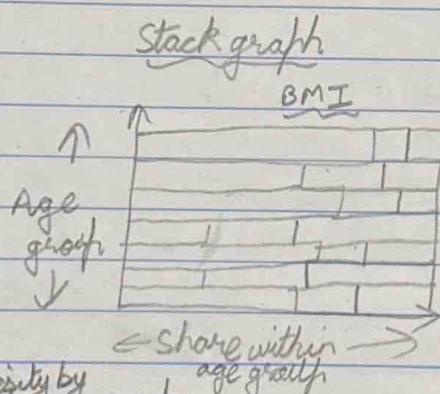 Stack graph
BMI
Age
group
Share within
age group
esity by